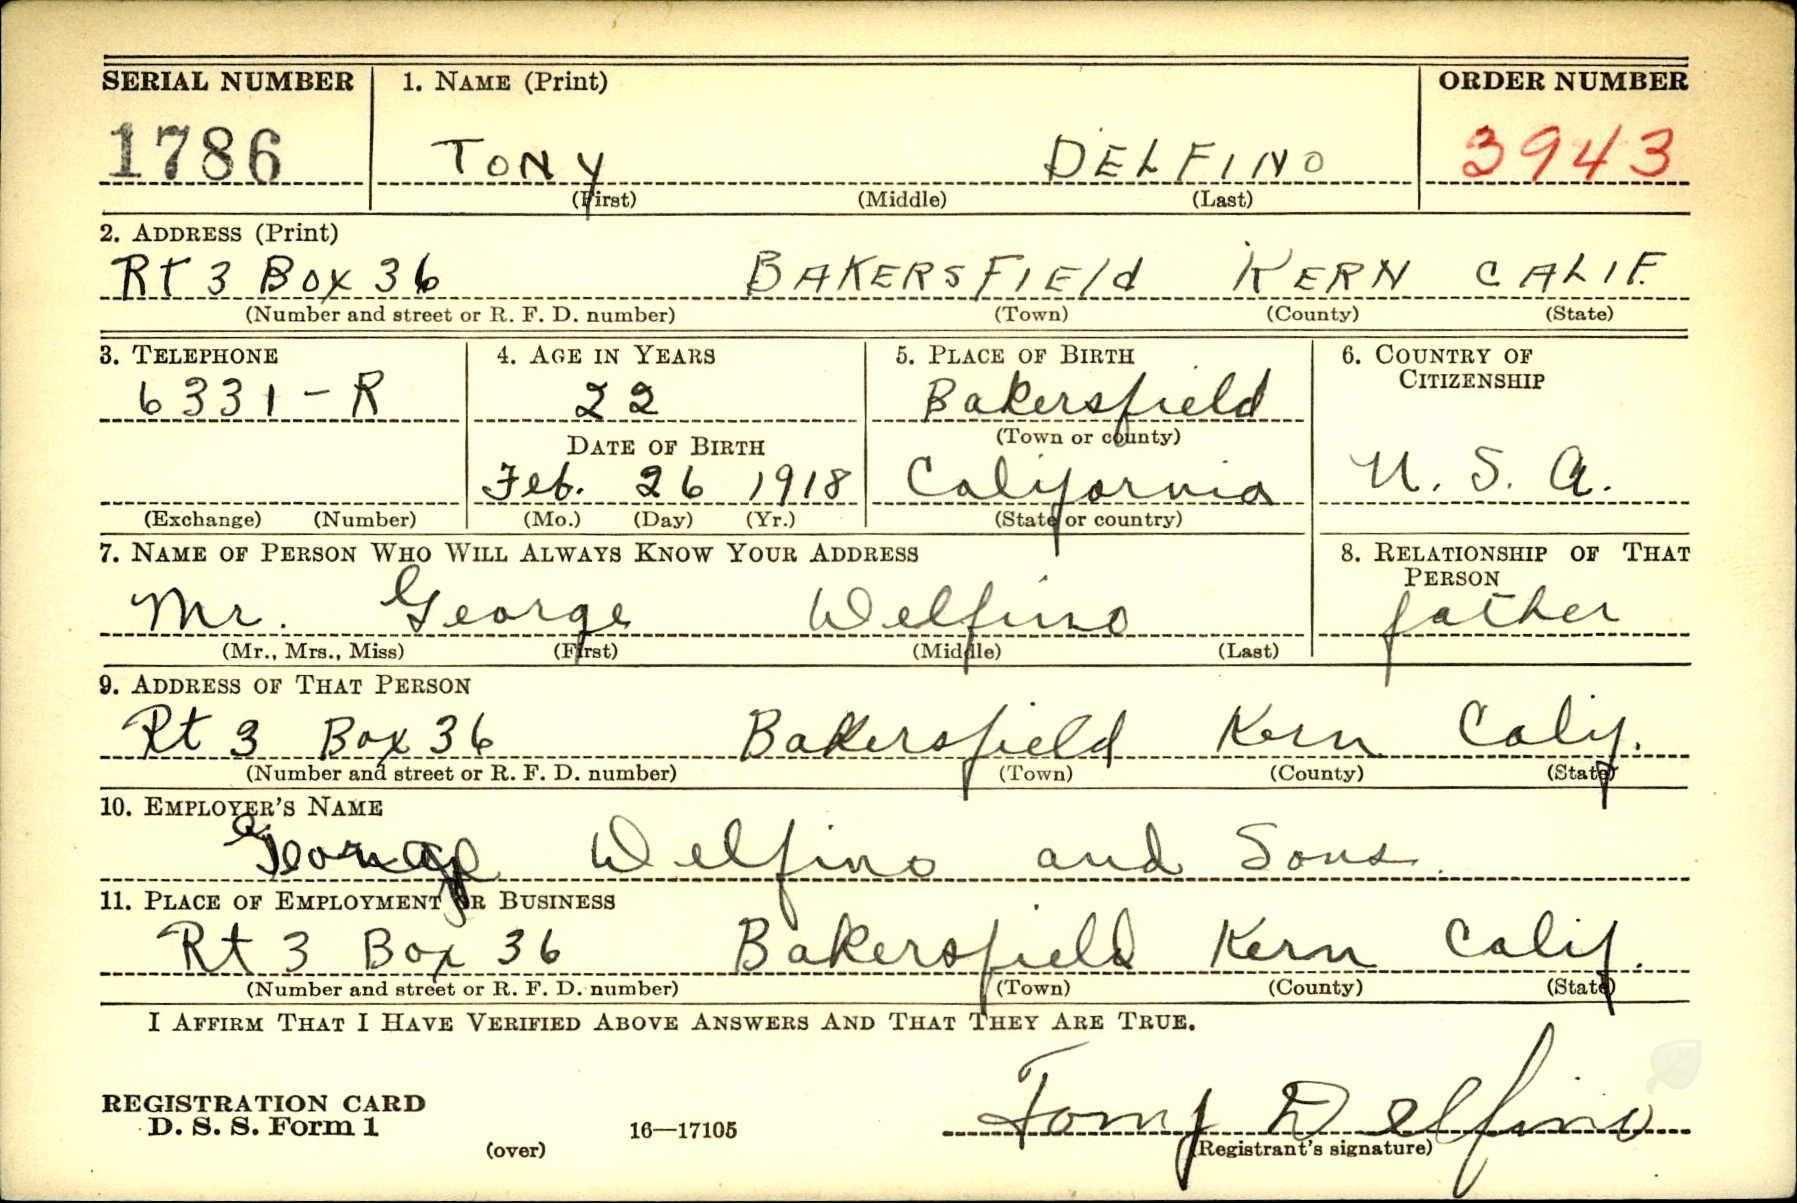 SERIAL NUMBER 1. NAME (Print) ORDER NUMBER
1786 TONY DELFINO 3943
(First) (Middle) (Last)
2. ADDRESS (Print)
Rt 3 Box 36 BAKERSFIEld KERN CALIF.
(Number and street or R. F. D. number) (Town) (County) (State)
3. TELEPHONE 4. AGE IN YEARS 5. PLACE OF BIRTH 6. COUNTRY OF
CITIZENSHIP
6331-R 22 Bakersfield
(Town or county)
DATE OF BIRTH
Feb. 26 1918 California U. S. A.
(Exchange) (Number) (Mo.) (Day) (Yr.) (State or country)
7. NAME OF PERSON WHO WILL ALWAYS KNOW YOUR ADDRESS 8. RELATIONSHIP OF THAT
PERSON
Mr. George Delfino father
(Mr., Mrs., Miss) (First) (Middle) (Last)
9. ADDRESS OF THAT PERSON
Rt 3 Box 36 Bakersfield Kern Calif.
(Number and street or R. F. D. number) (Town) (County) (State)
10. EMPLOYER'S NAME
George Delfino and Sons
11. PLACE OF EMPLOYMENT OR BUSINESS
Rt 3 Box 36 Bakersfield Kern Calif.
(Number and street or R. F. D. number) (Town) (County) (State)
I AFFIRM THAT I HAVE VERIFIED ABOVE ANSWERS AND THAT THEY ARE TRUE.
REGISTRATION CARD
D. S. S. Form 1 Tony Delfino
(over) 16—17105 (Registrant's signature)